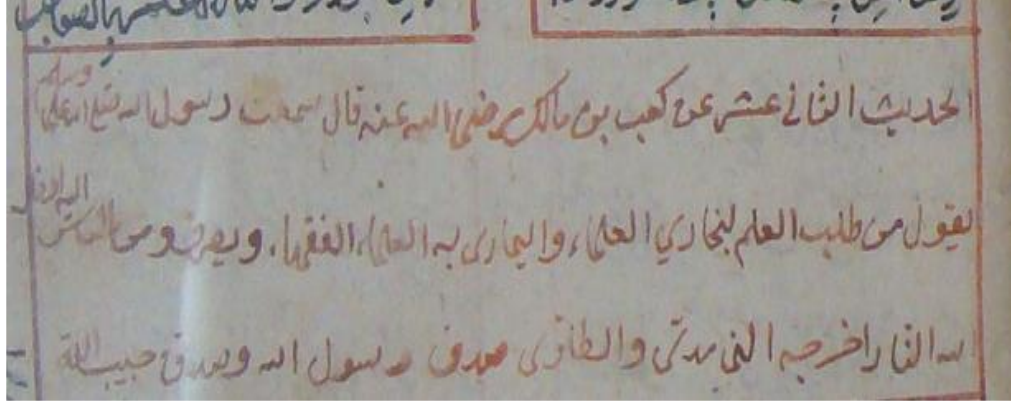 الحديث الثاني عشر عن كعب بن مالك رضي الله عنه قال سمعت رسول الله صلع الله عليه وسلم
يقول من طلب العلم ليجاري العلماء واليمارى به العلماء الفقهاء ويصرف وجوه الناس اليه ادخله
الله النار اخرجه الترمذى والطبراني صدق رسول الله وصدق حبيب الله